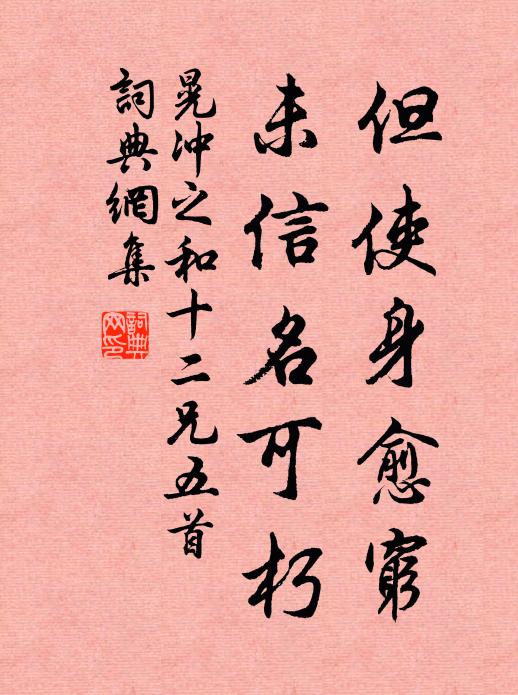 但使身愈窮
未信名可朽
晁沖之和十二兄五首
詞典網集
詞典網印